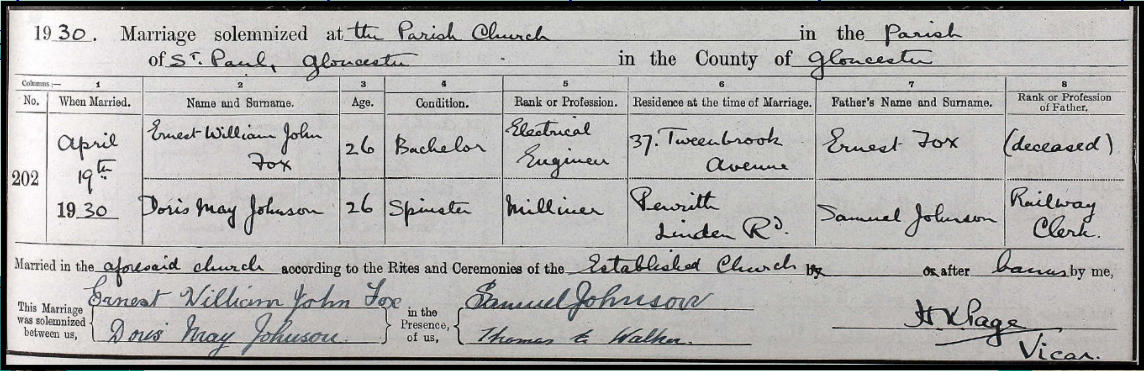 1930. Marriage solemnized at the Parish Church in the Parish
of St. Paul, Gloucester in the County of Gloucester
Columns:— 1 2 3 4 5 6 7 8
No. When Married. Name and Surname. Age. Condition. Rank or Profession. Residence at the time of Marriage. Father's Name and Surname. Rank or Profession of Father.
202
April 19th 1930
Ernest William John Fox
26
Bachelor
Electrical Engineer
37. Tweenbrook Avenue
Ernest Fox
(deceased)
Doris May Johnson
26
Spinster
Milliner
Penrith Linden Rd.
Samuel Johnson
Railway Clerk.
Married in the aforesaid church according to the Rites and Ceremonies of the Established Church by or after banns by me,
This Marriage was solemnized between us,
Ernest William John Fox
Doris May Johnson.
in the Presence, of us,
Samuel Johnson
Thomas E Walker.
H K Page
Vicar.